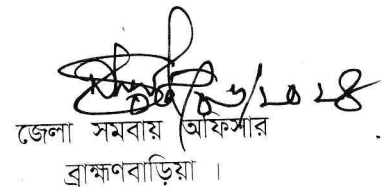 জেলা সমবায় অফিসার
ব্রাহ্মণবাড়িয়া ।